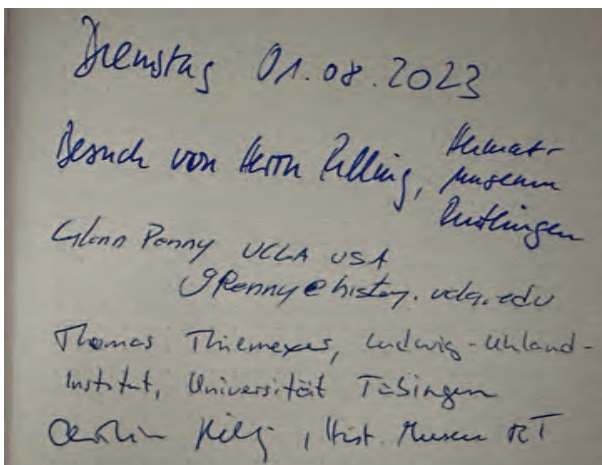 Dienstag 01.08.2023
Besuch von Herrn Rilling, Heimat-
museum
Reutlingen
Glenn Penny UCLA USA
gPenny@history.ucla.edu
Thomas Thiemeyer, Ludwig-Uhland-
Institut, Universität Tübingen
Hist. Museen RT